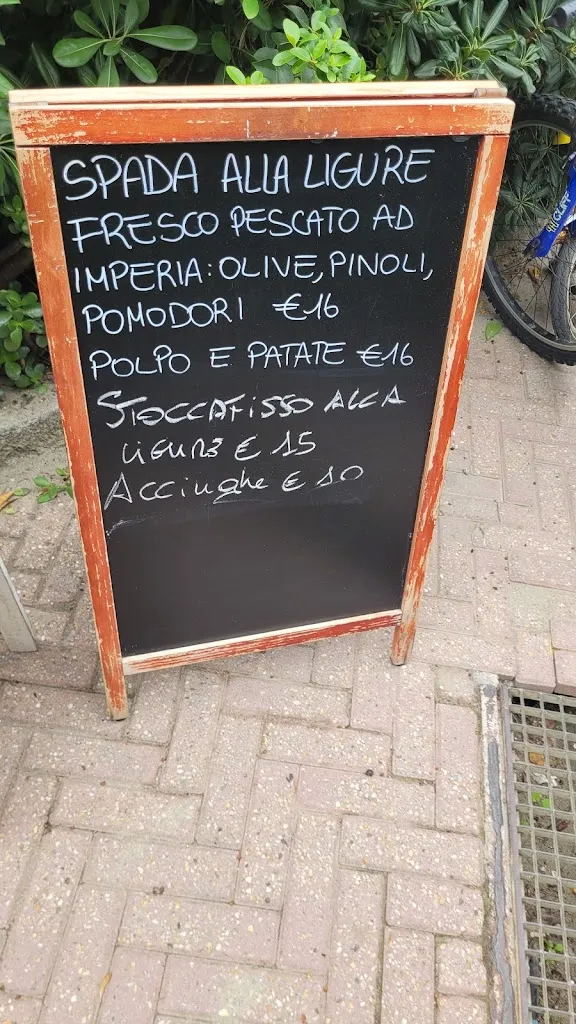 SPADA ALLA LIGURE
FRESCO PESCATO AD
IMPERIA: OLIVE, PINOLI,
POMODORI €16
POLPO E PATATE €16
STOCCAFISSO ALLA
LIGURE € 15
Acciughe € 10